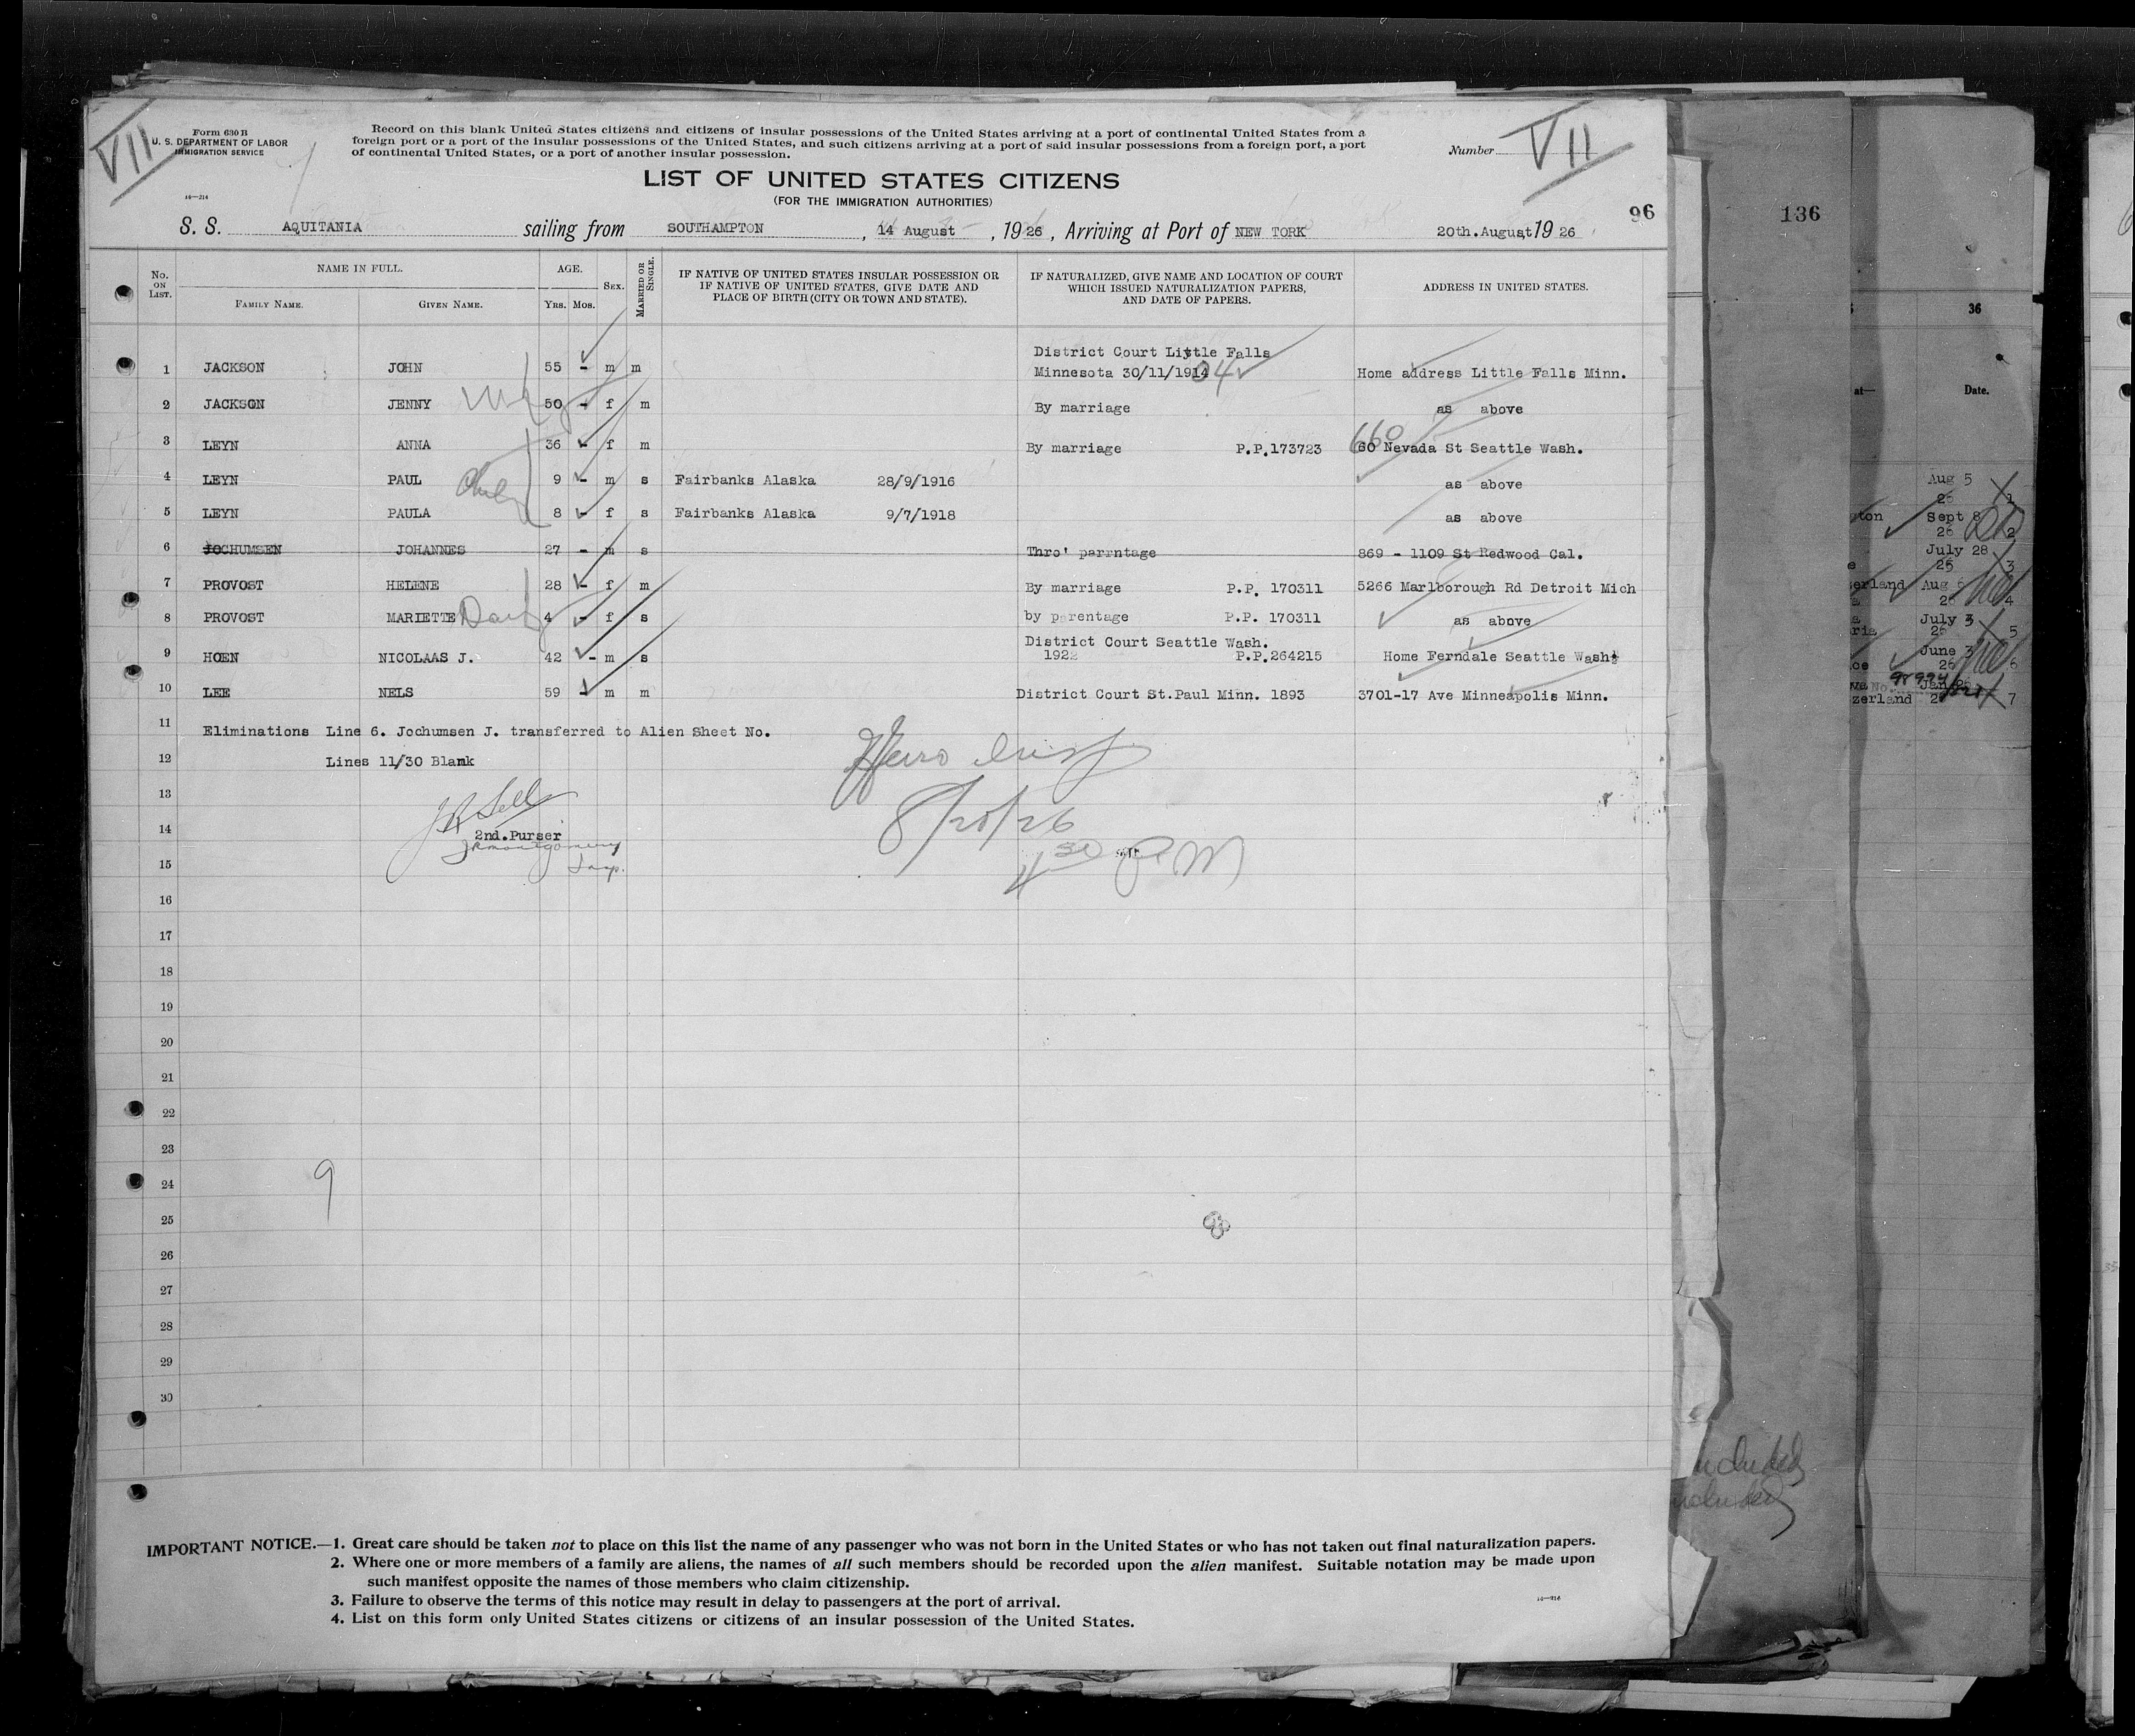 VII
Form 630 B
U. S. DEPARTMENT OF LABOR
IMMIGRATION SERVICE
Record on this blank United States citizens and citizens of insular possessions of the United States arriving at a port of continental United States from a
foreign port or a port of the insular possessions of the United States, and such citizens arriving at a port of said insular possessions from a foreign port, a port
of continental United States, or a port of another insular possession.
Number VII
16—214
LIST OF UNITED STATES CITIZENS
(FOR THE IMMIGRATION AUTHORITIES)
96
136
S. S. AQUITANIA sailing from SOUTHAMPTON, 14 August, 1926, Arriving at Port of NEW YORK 20th.August, 1926
No. ON LIST. NAME IN FULL. AGE. SEX. MARRIED OR SINGLE. IF NATIVE OF UNITED STATES INSULAR POSSESSION OR IF NATIVE OF UNITED STATES, GIVE DATE AND PLACE OF BIRTH (CITY OR TOWN AND STATE). IF NATURALIZED, GIVE NAME AND LOCATION OF COURT WHICH ISSUED NATURALIZATION PAPERS, AND DATE OF PAPERS. ADDRESS IN UNITED STATES.
FAMILY NAME. GIVEN NAME. YRS. MOS.
District Court Little Falls
1 JACKSON JOHN 55 - m m Minnesota 30/11/1914 04 Home address Little Falls Minn.
2 JACKSON JENNY 50 - f m By marriage as above
3 LEYN ANNA 36 - f m By marriage P.P.173723 660 60 Nevada St Seattle Wash.
4 LEYN PAUL 9 - m s Fairbanks Alaska 28/9/1916 as above
5 LEYN PAULA 8 - f s Fairbanks Alaska 9/7/1918 as above
6 JOCHUMSEN JOHANNES 27 - m s Thro' parrntage 869 - 1109 St Redwood Cal.
7 PROVOST HELENE 28 - f m By marriage P.P. 170311 5266 Marlborough Rd Detroit Mich
8 PROVOST MARIETTE 4 - f s by parentage P.P. 170311 as above
District Court Seattle Wash.
9 HOEN NICOLAAS J. 42 - m s 1922 P.P.264215 Home Ferndale Seattle Wash
10 LEE NELS 59 - m m District Court St.Paul Minn. 1893 3701-17 Ave Minneapolis Minn.
11 Eliminations Line 6. Jochumsen J. transferred to Alien Sheet No.
12 Lines 11/30 Blank
13
8/20/26
14
2nd.Purser
JRMontgomery
15
Insp.
4 30 PM
16
17
18
19
20
21
22
23
9
24
25
26
27
28
29
30
IMPORTANT NOTICE.—1. Great care should be taken not to place on this list the name of any passenger who was not born in the United States or who has not taken out final naturalization papers.
2. Where one or more members of a family are aliens, the names of all such members should be recorded upon the alien manifest. Suitable notation may be made upon
such manifest opposite the names of those members who claim citizenship.
3. Failure to observe the terms of this notice may result in delay to passengers at the port of arrival.
4. List on this form only United States citizens or citizens of an insular possession of the United States.
36
Date.
Aug 5
26 1
Sept 8
26 2
July 28
25 3
Aug 6
26 4
July 3
26 5
June 3
26 6
7